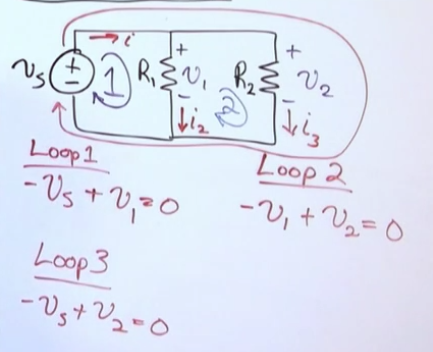 i
+
+
vs
+
-
1
R1
v1
R2
v2
-
2
-
i2
i3
Loop 1
-vs + v1 = 0
Loop 2
-v1 + v2 = 0
Loop 3
-vs + v2 = 0